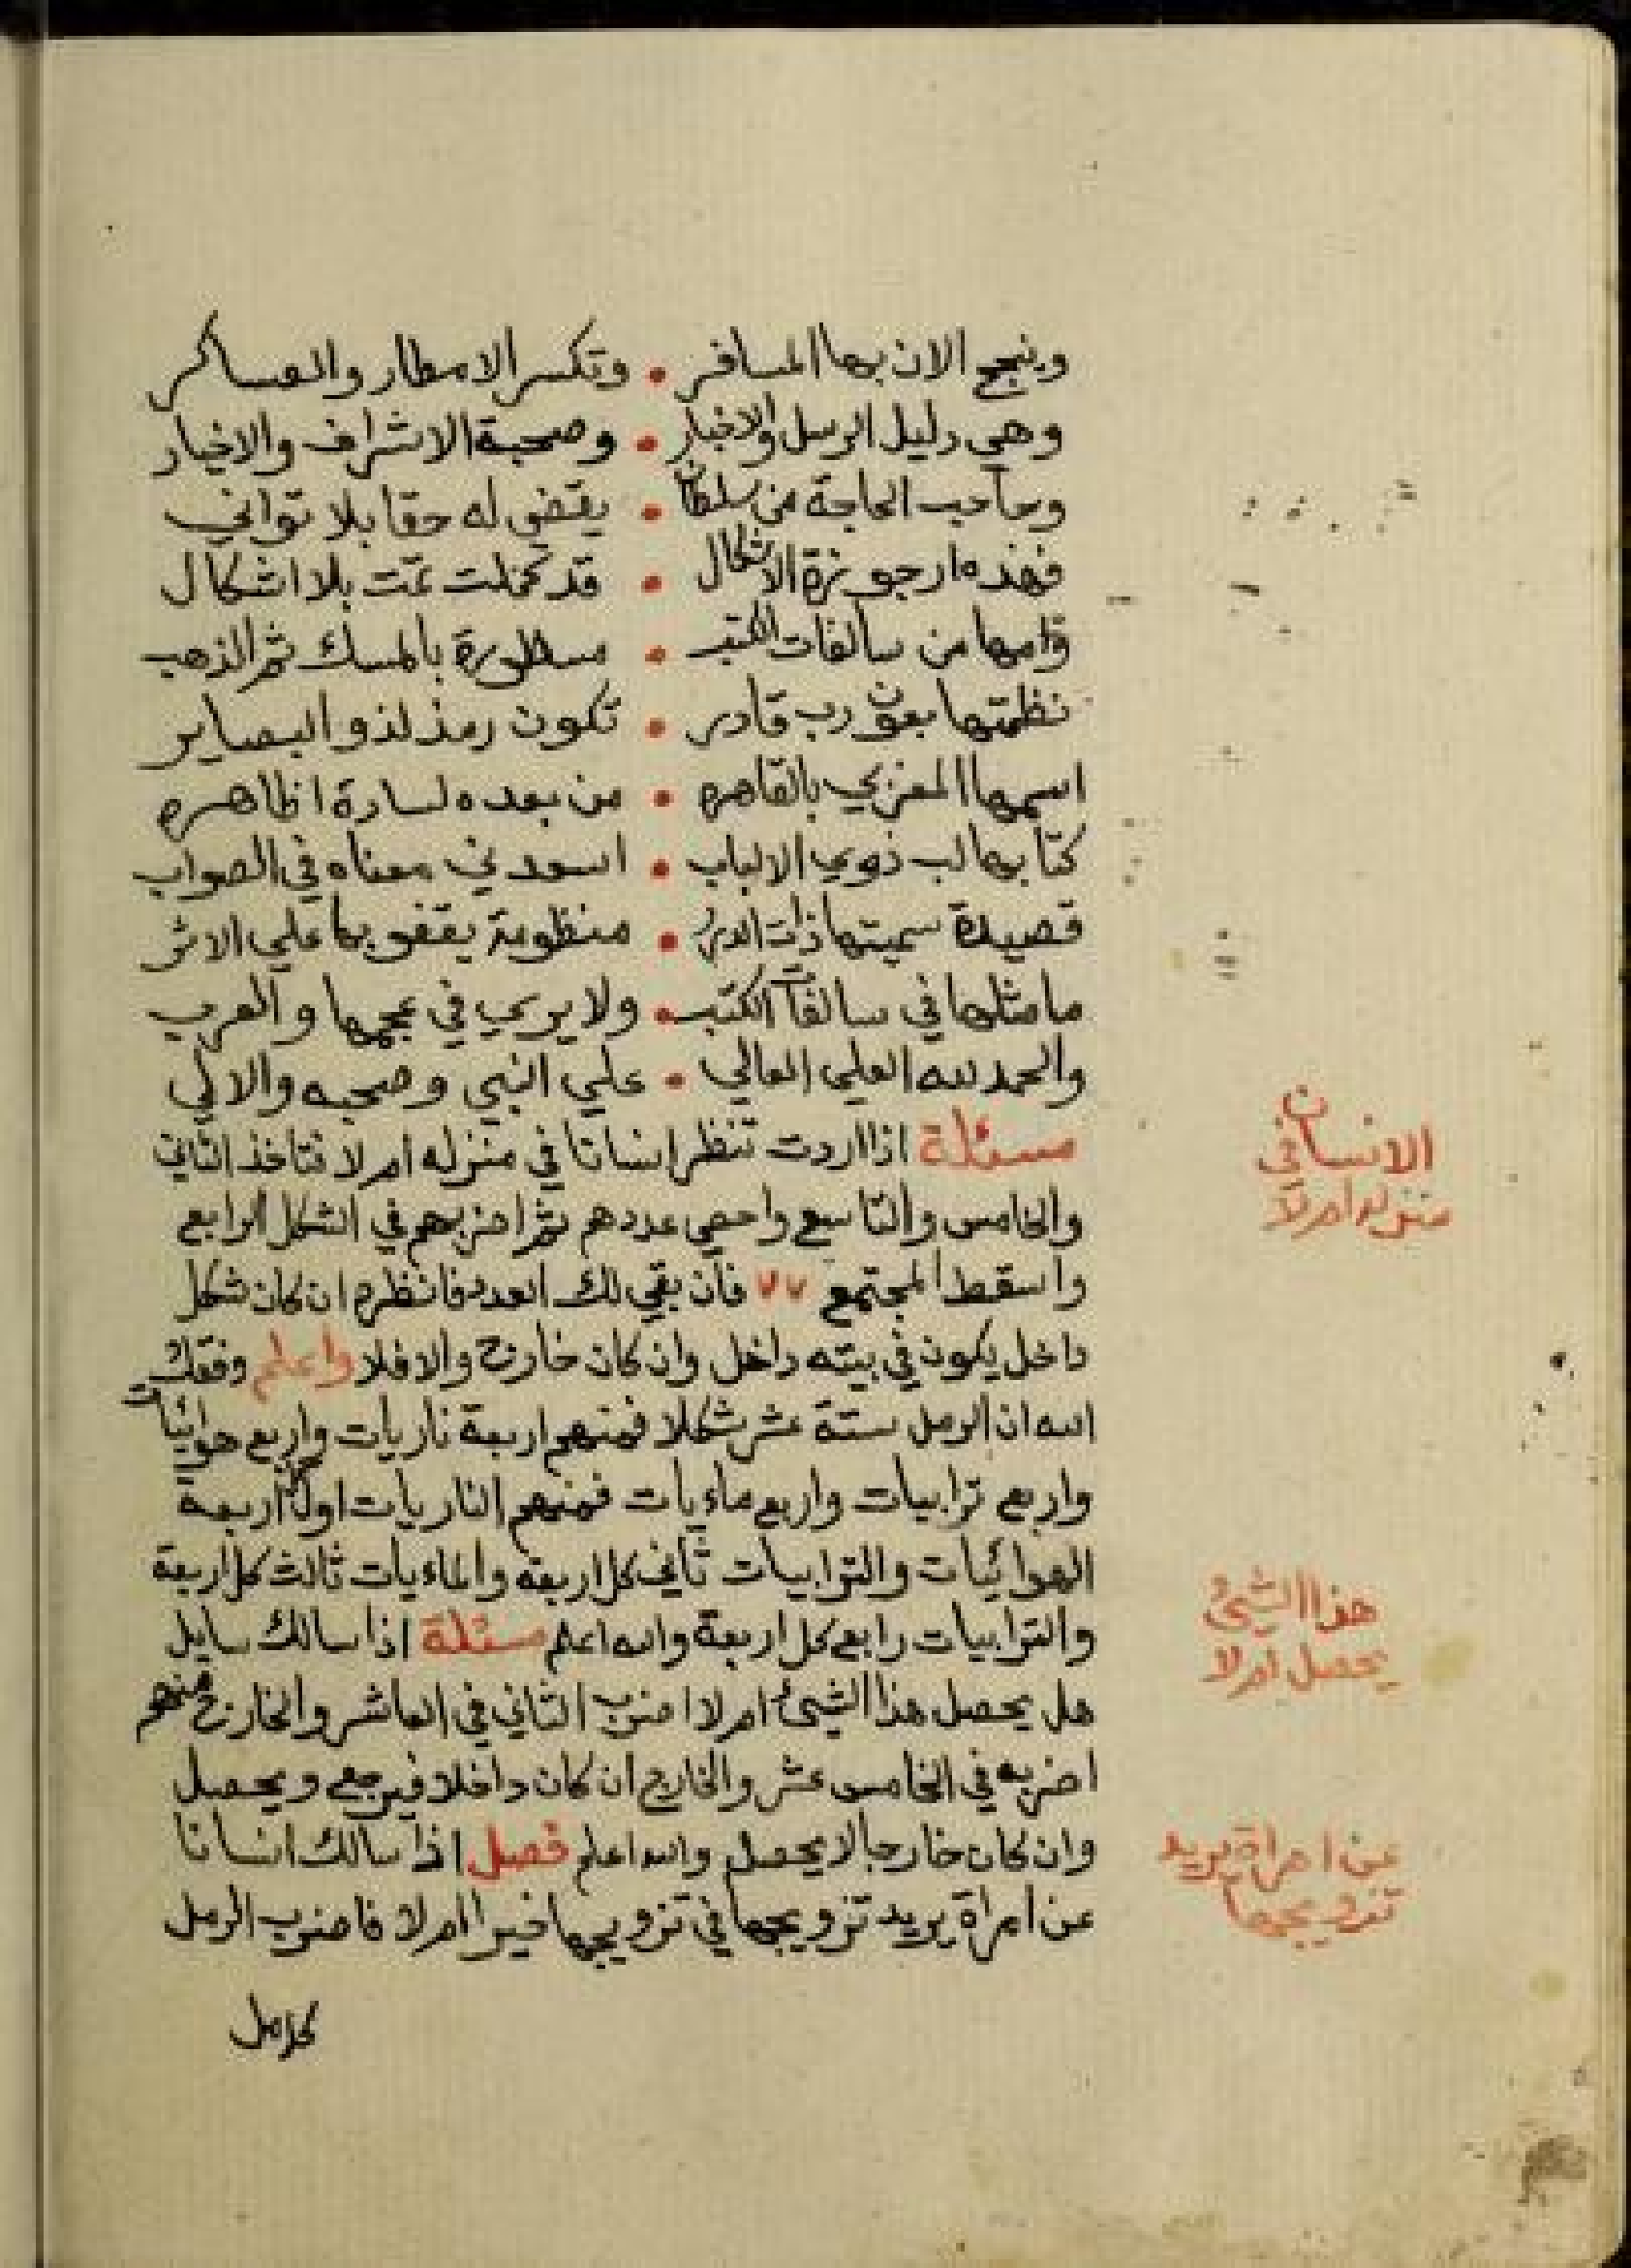 وينجح الان بها المسافر • وتكسر الامطار والعساكر
وهي دليل الرسل والاخبار • وصحبة الاشراف والاخيار
وصاحب الحاجة من سلطان • يقتضي له حقا بلا تواني
فهذه ارجوزة الاشكال • قد كملت تمت بلا اشكال
من سالفات الكتب • مسطورة بالمسك ثم الذهب
نظمتها بعون رب قادر • تكون رمز لذو البصاير
اسمها المغربي بالقاهره • من بعده لسادة اظاهره
كتابها لب ذوي الالباب • اسعدني معناه في الصواب
قصيدة سميتها ذات الدرر • منظومة يقفو بها علي الاثر
ما مثلها في سالفات الكتب • ولا يري في عجمها والعرب
والحمد لله العلي العالي • علي النبي وصحبه والالي
مسئلة اذا اردت تنظر انسانا في منزله ام لا فتاخذ الثاني
والخامس والتاسع واحصي عددهم ثم اضربهم في الشكل الرابع
واسقط المجتمع ٧٧ فان بقي لك العدد فانظره ان كان شكل
داخل يكون في بيته داخل وان كان خارج والا فلا واعلم وفقك
الله ان الرمل ستة عشر شكلا فمنهم اربعة ناريات واربع هوائيات
واربع ترابيات واربع ماءيات فمنهم الناريات اول كل اربعة
الهوائيات والترابيات ثاني كل اربعه والماءيات ثالث كل اربعة
والترابيات رابع كل اربعة والله اعلم مسئلة اذا سالك سايل
هل يحصل هذا الشيئ ام لا اضرب الثاني في العاشر والخارج منهم
اضربه في الخامس عشر والخارج ان كان داخلا فيرجع ويحصل
وان كان خارجا لا يحصل والله اعلم فصل اذا سالك انسانا
عن امراة يريد تزويجها في تزويجها خيرا ام لا فاضرب الرمل
كامل
الانسان في
منزله ام لا
هذا الشيئ
يحصل ام لا
عن امراة يريد
تزويجها